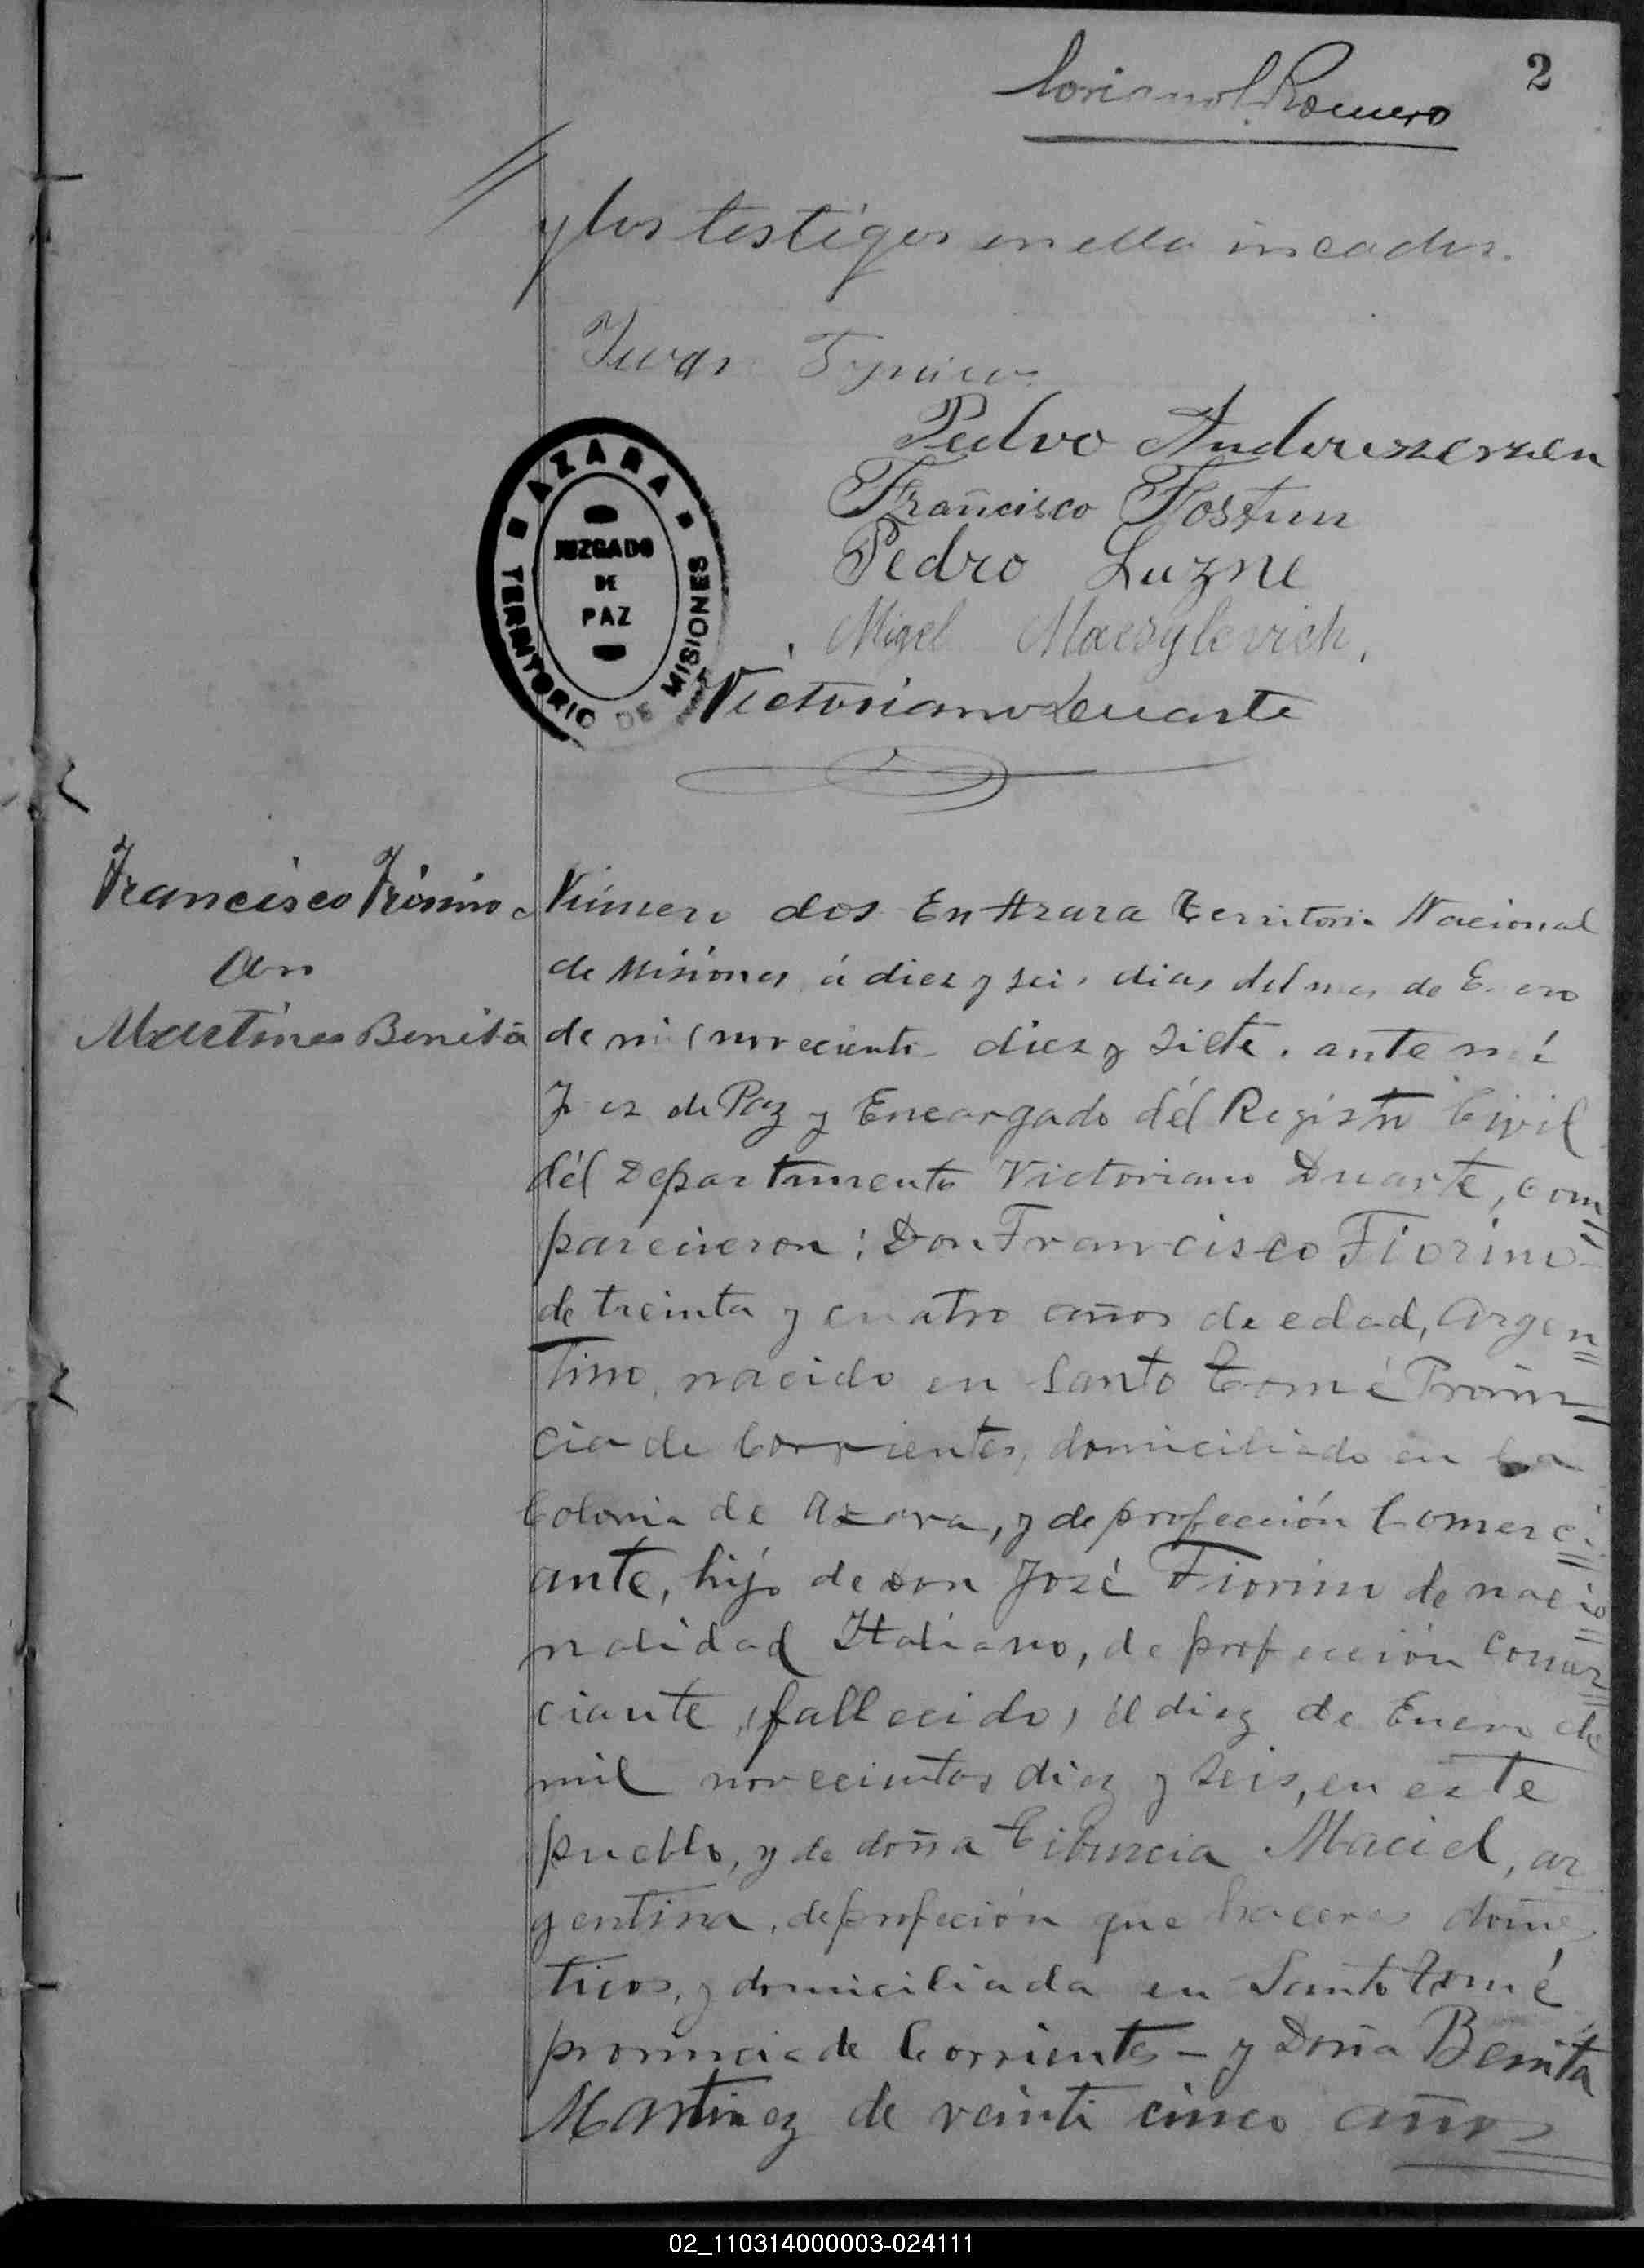 2
Romero
y los testigos en ella
Juan
Pedro
Francisco Fostun
Pedro Luzne
Migel
Victoriano Duarte
AZARA
TERRITORIO DE MISIONES
JUZGADO
DE
PAZ
Francisco
con
Martines Benita
Número dos En Azara Territorio Nacional
de Misiones, á diez y seis dias del mes de Enero
de mil novecientos diez y siete. ante mi
Juez de Paz y Encargado dél Registro Civil
dél Departamento Victoriano Duarte, com
parecieron: Don Francisco Fiorino
de treinta y cuatro años de edad, argen
tino, nacido en Santo Tomé Provin
cia de Corrientes, domiciliado en la
Colonia de Azara, y de profección Comerci
ante, hijo de Don José Fiorino de nacio
nalidad Italiano, de profección comer
ciante, (fallecido) él diez de Enero de
mil novecientos diez y seis, en este
pueblo, y de doña Tiburcia Maciel, ar
gentina, de profeción que haceres domes
ticos, y domiciliada en Santo Tomé
provincia de Corrientes - y Doña Benita
Martinez de veinti cinco años
02_110314000003-024111